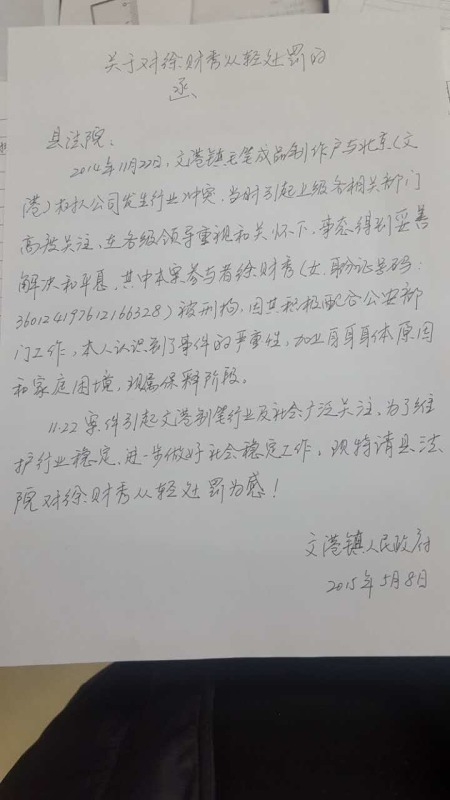 关于对徐财秀从轻处罚的
函
县法院：
2014年11月22日，文港镇毛笔成品制作户与北京（文
港）公司发生行业冲突，当时引起上级各相关部门
高度关注，在各级领导重视和关怀下，事态得到妥善
解决和平息，其中本案参与者徐财秀（女，身份证号码：
360124197612166328）被刑拘，因其积极配合公安部
门工作，本人认识到了事件的严重性，加业自身身体原因
和家庭困境，现属保释阶段。
11.22案件引起文港制笔行业及社会广泛关注，为了维
护行业稳定，进一步做好社会稳定工作，现特请县法
院对徐财秀从轻处罚为感！
文港镇人民政府
2015年5月8日